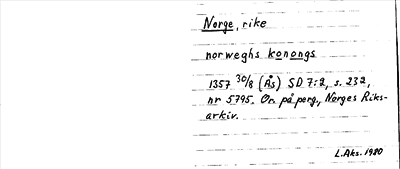 Norge, rike
norweghs konongs
1357 30/8 (Ås) SD 7:2, s. 232,
nr 5795. Or. på perg., Norges Riks-
arkiv.
L.Aks. 1980